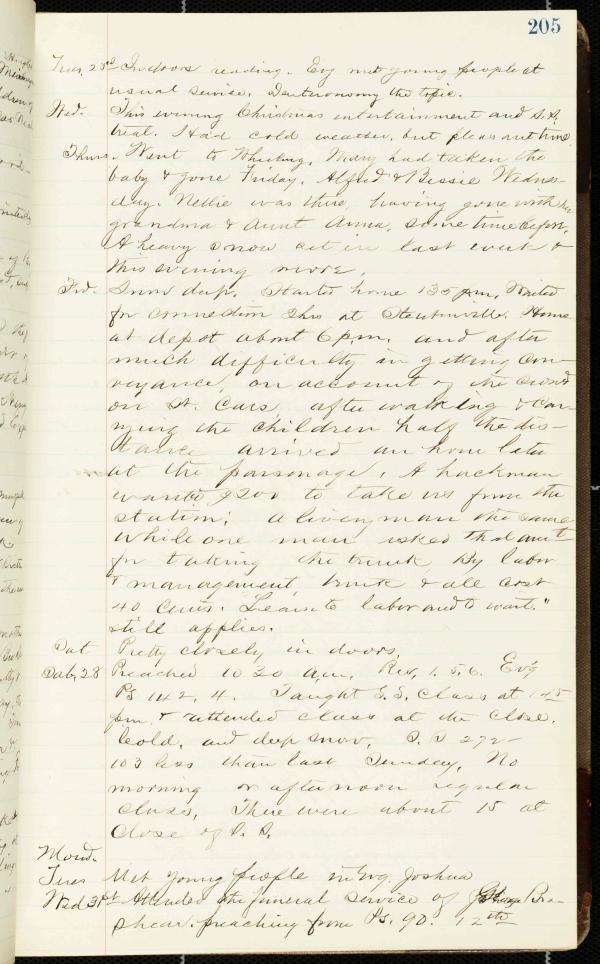 205
Tues. 23d Indoors reading. Evg met young people at
usual service. Deuteronomy the topic.
Wed. This evening Christmas entertainment and S.S.
treat. Had cold weather, but pleasant time.
Thurs. Went to Wheeling. Mary had taken the
baby & gone Friday. Alfred & Bessie Wednes-
day. Nellie was there, having gone with her
grandma & Aunt Anna, some time before.
A heavy snow set in last week &
this evening more.
Frid. Snow deep. Started home 135 pm. Waited
for connection 2hrs at Steubenville. Home
at depot about 6 p.m. and after
much difficulty in getting con-
veyance, on account of the crowd
on St. Cars, after walking & car-
rying the children half the dis-
tance arrived an hour later
at the parsonage. A hackman
wanted $200 to take us from the
station; a liveryman the same
while one man asked that amt
for taking the trunk. By labor
& management, trunk & all cost
40 cents. "Learn to labor and to wait."
still applies.
Sat Pretty closely in doors.
Sab. 28 Preached 10 30 a.m. Rev. 1. 5, 6. Ev'g
Ps 142. 4. Taught S.S. Class at 1 45
pm. & attended class at the close.
Cold, and deep snow. S.S 272 -
103 less than last Sunday. No
morning or afternoon regular
class. There were about 15 at
close of S. S.
Mond.
Tues Met young people in Evg. Joshua
Wed 31st Attended the funeral service of George Bra-
shear. preaching from Ps. 90. 12th